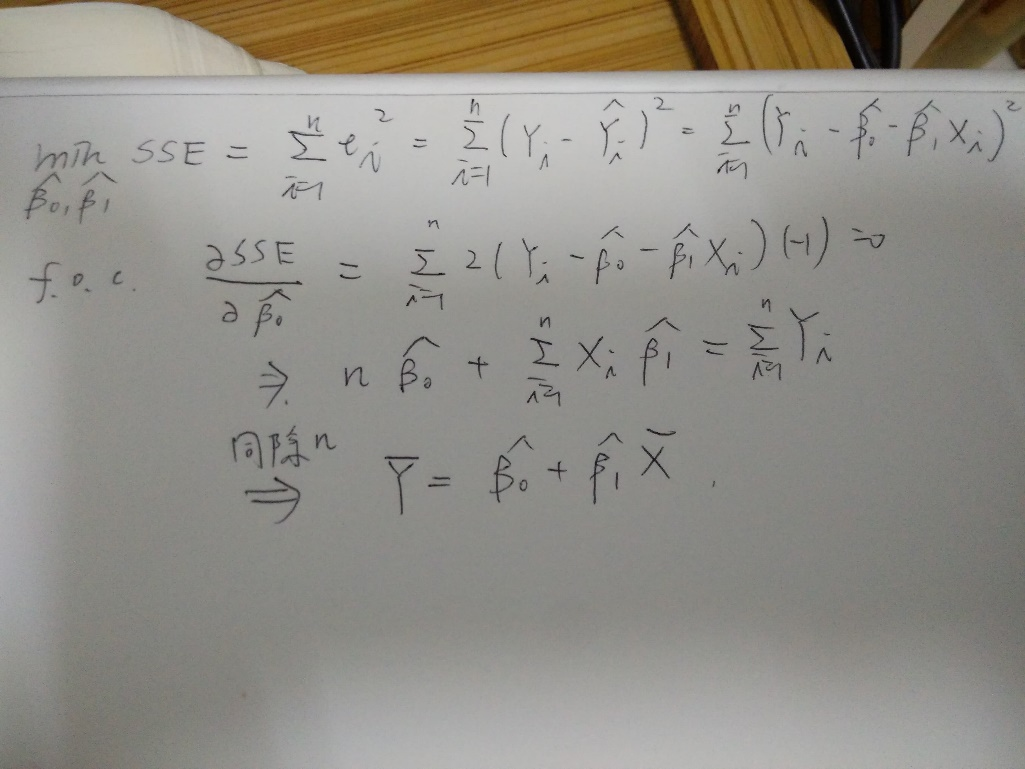 min SSE = Σ_{i=1}^{n} e_i^2 = Σ_{i=1}^{n} (Y_i - Ŷ_i)^2 = Σ_{i=1}^{n} (Y_i - β̂_0 - β̂_1 X_i)^2
β̂_0, β̂_1
f.o.c. ∂SSE / ∂β̂_0 = Σ_{i=1}^{n} 2(Y_i - β̂_0 - β̂_1 X_i)(-1) = 0
⇒ n β̂_0 + Σ_{i=1}^{n} X_i β̂_1 = Σ_{i=1}^{n} Y_i
同除n
⇒ Ȳ = β̂_0 + β̂_1 X̄ .